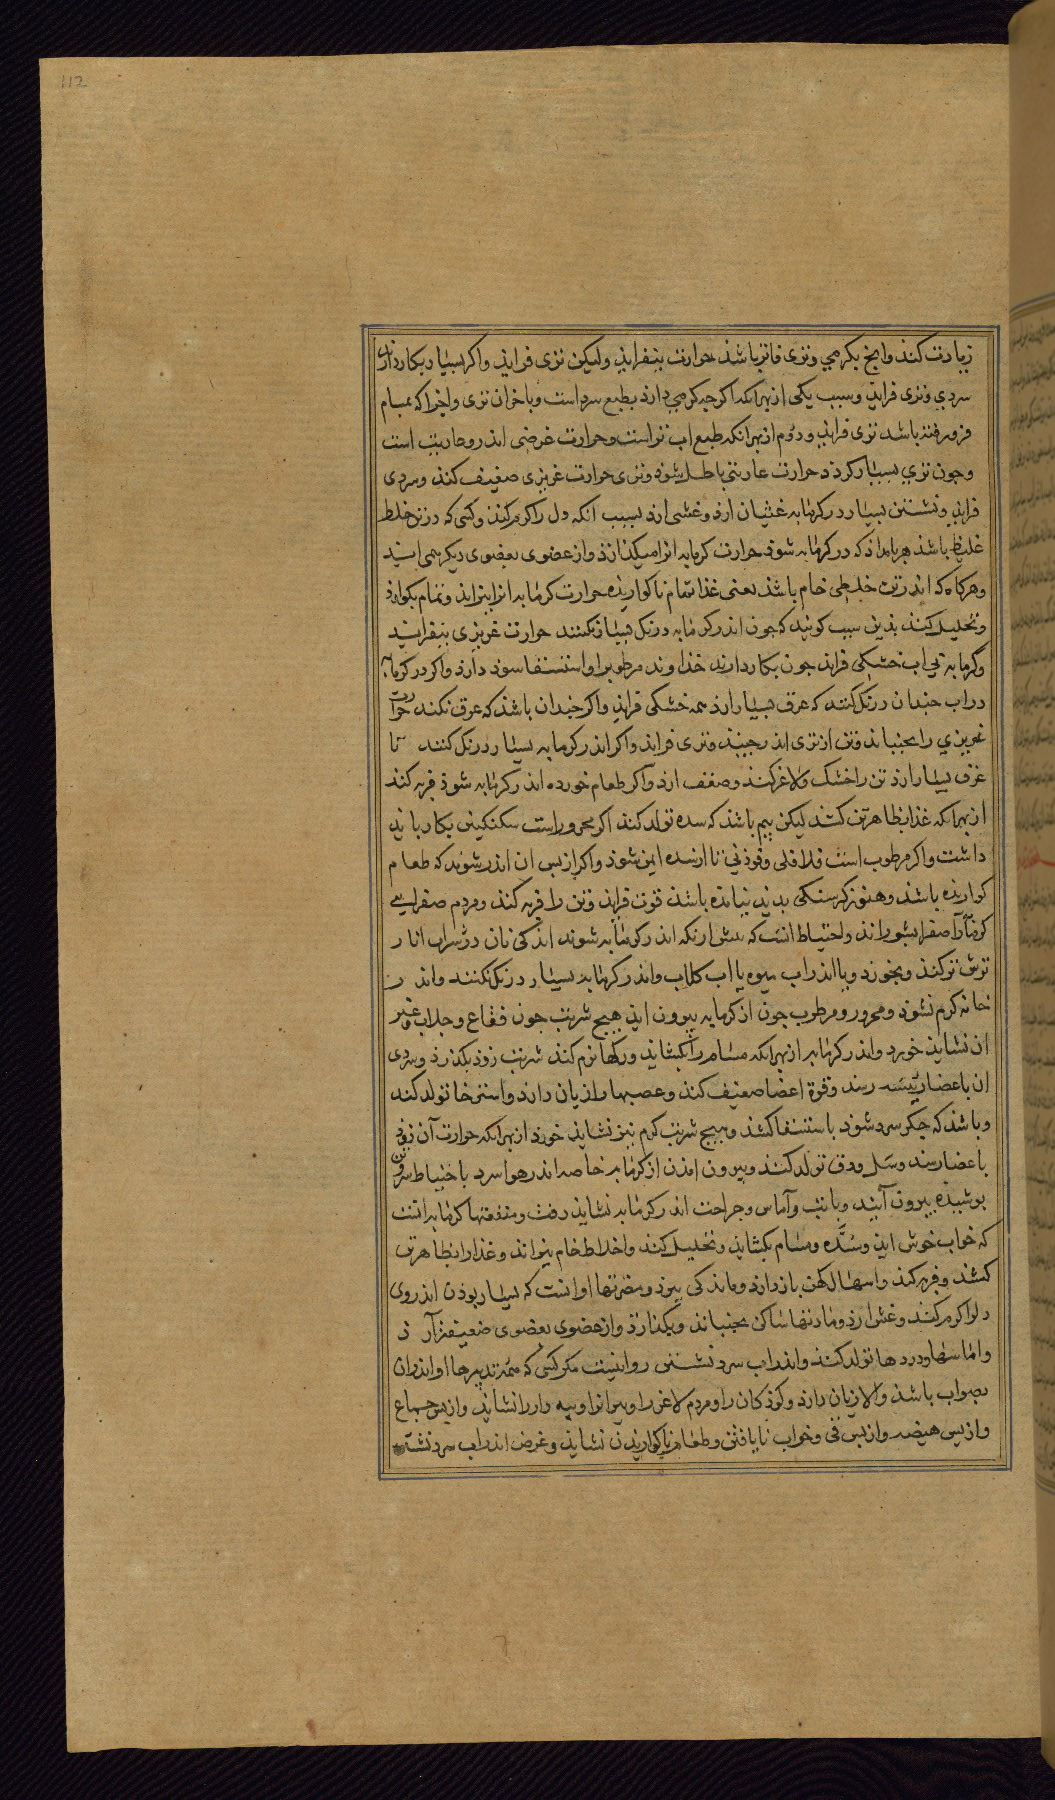 112
زیادت کند وانچ بکرمی وتری فاتر باشد حرارت بنفزاید ولیکن تری فزاید واکر بسیار بکار دارند
سردی وتری فزاید وسبب یکی از بهر انکه اکرچه کرمی دارد بطبع سرد است وباخر ان تری واجزا که بمسام
فرو رفته باشد تری فزاید ودوم از بهر انکه طبع اب تر است وحرارت عرضی اندر وعاریت است
وجون تری بسیار کردد حرارت عاریتی باطل شود وتری حرارت غریزی ضعیف کند وسردی
فزاید ونشستن بسیار در کرمابه غثیان ارد وغشی ارد بسبب انکه دل را کرم کند وکسی که در تن خلط
غلیظ باشد هر بامداد که در کرمابه شود حرارت کرمابه انرا میکدازد واز عضوی بعضوی دیکر همی اید
وهرکاه که اندر تن خلطی خام باشد یعنی غذا تمام ناکواریده حرارت کرمابه انرا بپزاند وتمام بکوارد
وتحلیل کند بدین سبب کویند که جون اندر کرمابه درنک بسیار نکنند حرارت غریزی بنفزاید
وکرمابه بی اب خشکی فزاید جون بکار دارند خداوند مرطوبرا واستسقا سود دارد واکر در کرمابه
در اب جندان درنک کنند که عرق بسیار ارد همه خشکی فزاید واکر جندان باشد که عرق نکند حرارت
غریزی را بجنباند وتن از تری اندر جیند وتری فزاید واکر اندر کرمابه بسیار درنک کنند تا
عرق بسیار ارد تن را خشک ولاغر کند وضعف ارد واکر طعام خورده اندر کرمابه شود فربه کند
از بهر انکه غذا بظاهر تن کشد لیکن بیم باشد که سده تولد کند اکر محرور است سکنکبین بکار باید
داشت واکر مرطوب است فلافلی وفودنی تا از سده ایمن شود واکر از پس ان اندر شوند که طعام
کواریده باشد وهنوز کرسنکی بدید نیامده باشد قوت فزاید وتن را فربه کند ومردم صفرایی
کرمابه صفرا بشوراند واحتیاط انست که پیش از انکه اندر کرمابه شوند اندکی نان در شراب انار
ترش تر کند وبخورد ویا اندر اب میوه یا اب کلاب واندر کرمابه بسیار درنک نکنند واندر
خانه کرم نشود ومحرور ومرطوب جون از کرمابه بیرون اید هیچ شربت جون فقاع وجلاب وغیر
ان نشاید خورد واندر کرمابه از بهر انکه مسام را بکشاید ورکها نرم کند شربت زود بکذرد وسردی
ان باعضا رئیسه رسد وقوة اعضا ضعیف کند وعصبها را زیان دارد واسترخا تولد کند
وباشد که جکر سرد شود باستسقا کشد وهیچ شربت کرم نیز نشاید خورد از بهر انکه حرارت آن زود
باعضا رسد وسل ودق تولد کند وبیرون امدن از کرمابه خاصه اندر هوا سرد باحتیاط سر وتن
پوشیده بیرون آیند وبا تب وآماس وجراحت اندر کرمابه نشاید رفت ومنفعتها کرمابه انست
که خواب خوش اید وسده ومسام بکشاید وتحلیل کند واخلاط خام بپزاند وغذا را بظاهر تن
کشد وفربه کند واسهال کهن باز دارد وماندکی ببرد ومضرتها او انست که بسیار بودن اندر وی
دل را کرم کند وغشی ارد ومادتها ساکن بجنباند وبکدازد واز عضوی بعضوی ضعیفتر آرد
واماسها ودردها تولد کند واندر اب سرد نشستن روا نیست مکر کسی که همه تدبیرها او اندر ان
بصواب باشد والا زیان دارد وکودکان را ومردم لاغر را وپیرانرا وپیه دار را نشاید واز پس جماع
واز پس هیضه واز پس قی وخواب نایافتن وطعام ناکواریدن نشاید وغرض اندر اب سرد نشستن